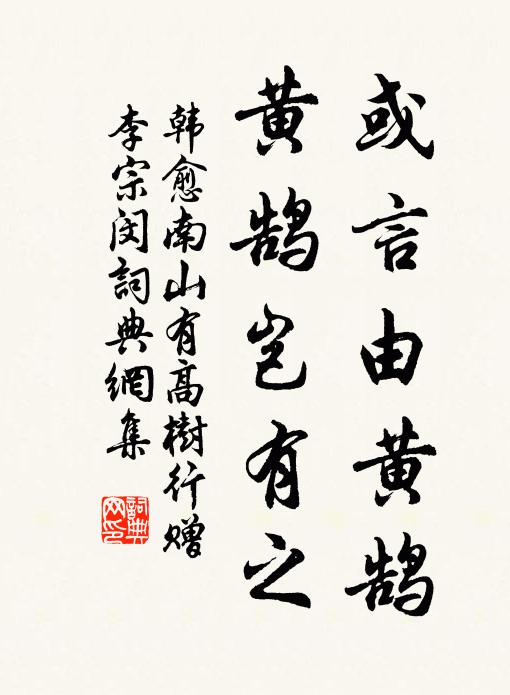 或言由黄鹄
黄鹄岂有之
韩愈南山有高樹行赠
李宗闵詞典網集
詞典
网印